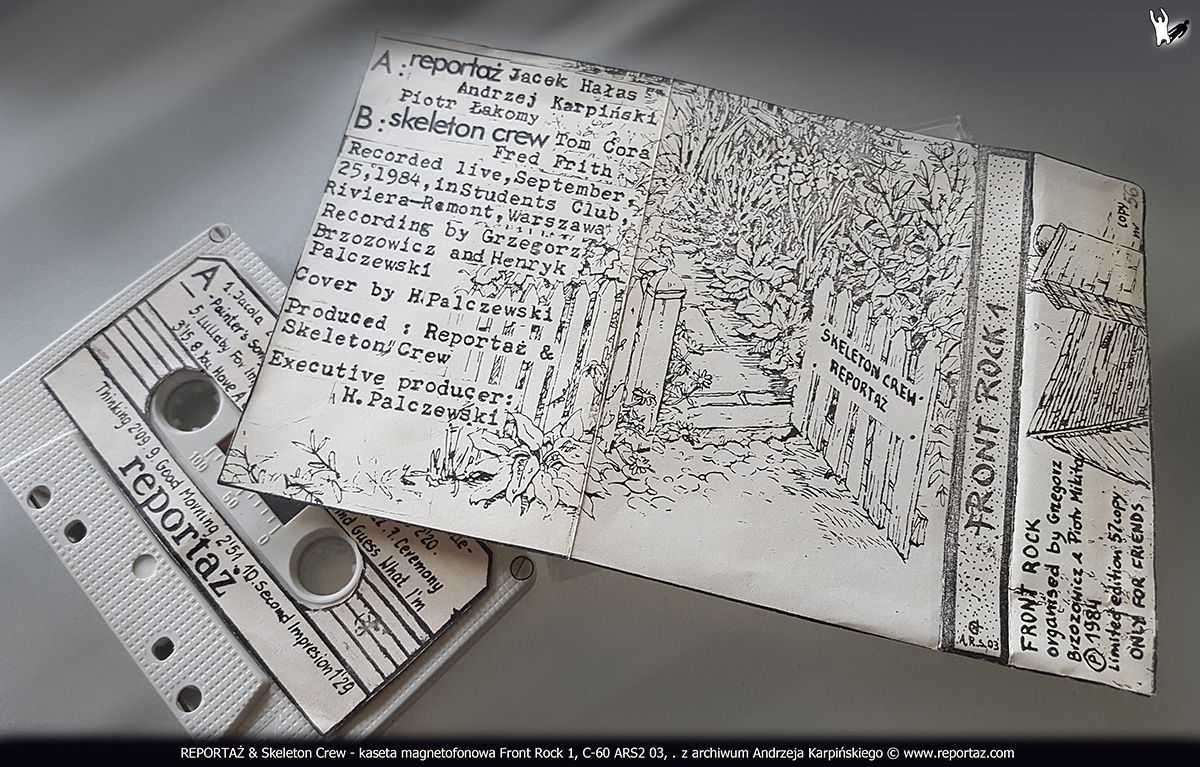 A: reportaż Jacek Hałas
Andrzej Karpiński
Piotr Łakomy
B: skeleton crew Tom Cora
Fred Frith
Recorded live, September,
25, 1984, inStudents Club,
Riviera-Remont, Warszawa
Recording by Grzegorz
Brzozowicz and Henryk
Palczewski
Cover by H.Palczewski
Produced : Reportaż &
Skeleton Crew
Executive producer:
H. Palczewski
SKELETON CREW-
REPORTAŻ
FRONT ROCK 1
ARS 03
COPY 56
FRONT ROCK
organised by Grzegorz
Brzozowicz & Piotr Mikita
Ⓟ 1984
Limited edition 57copy
ONLY FOR FRIENDS
A
1. Jacola
Painter's Son
5. Lullaby For
3'15 8. You Have A
Thinking 2'09 9 Good Morning 2'51 10. Second Impresion 1'29
reportaż
100
50
0
2'20.
7. Ceremony
And Guess What I'm
REPORTAŻ & Skeleton Crew - kaseta magnetofonowa Front Rock 1, C-60 ARS2 03, . z archiwum Andrzeja Karpińskiego © www.reportaz.com